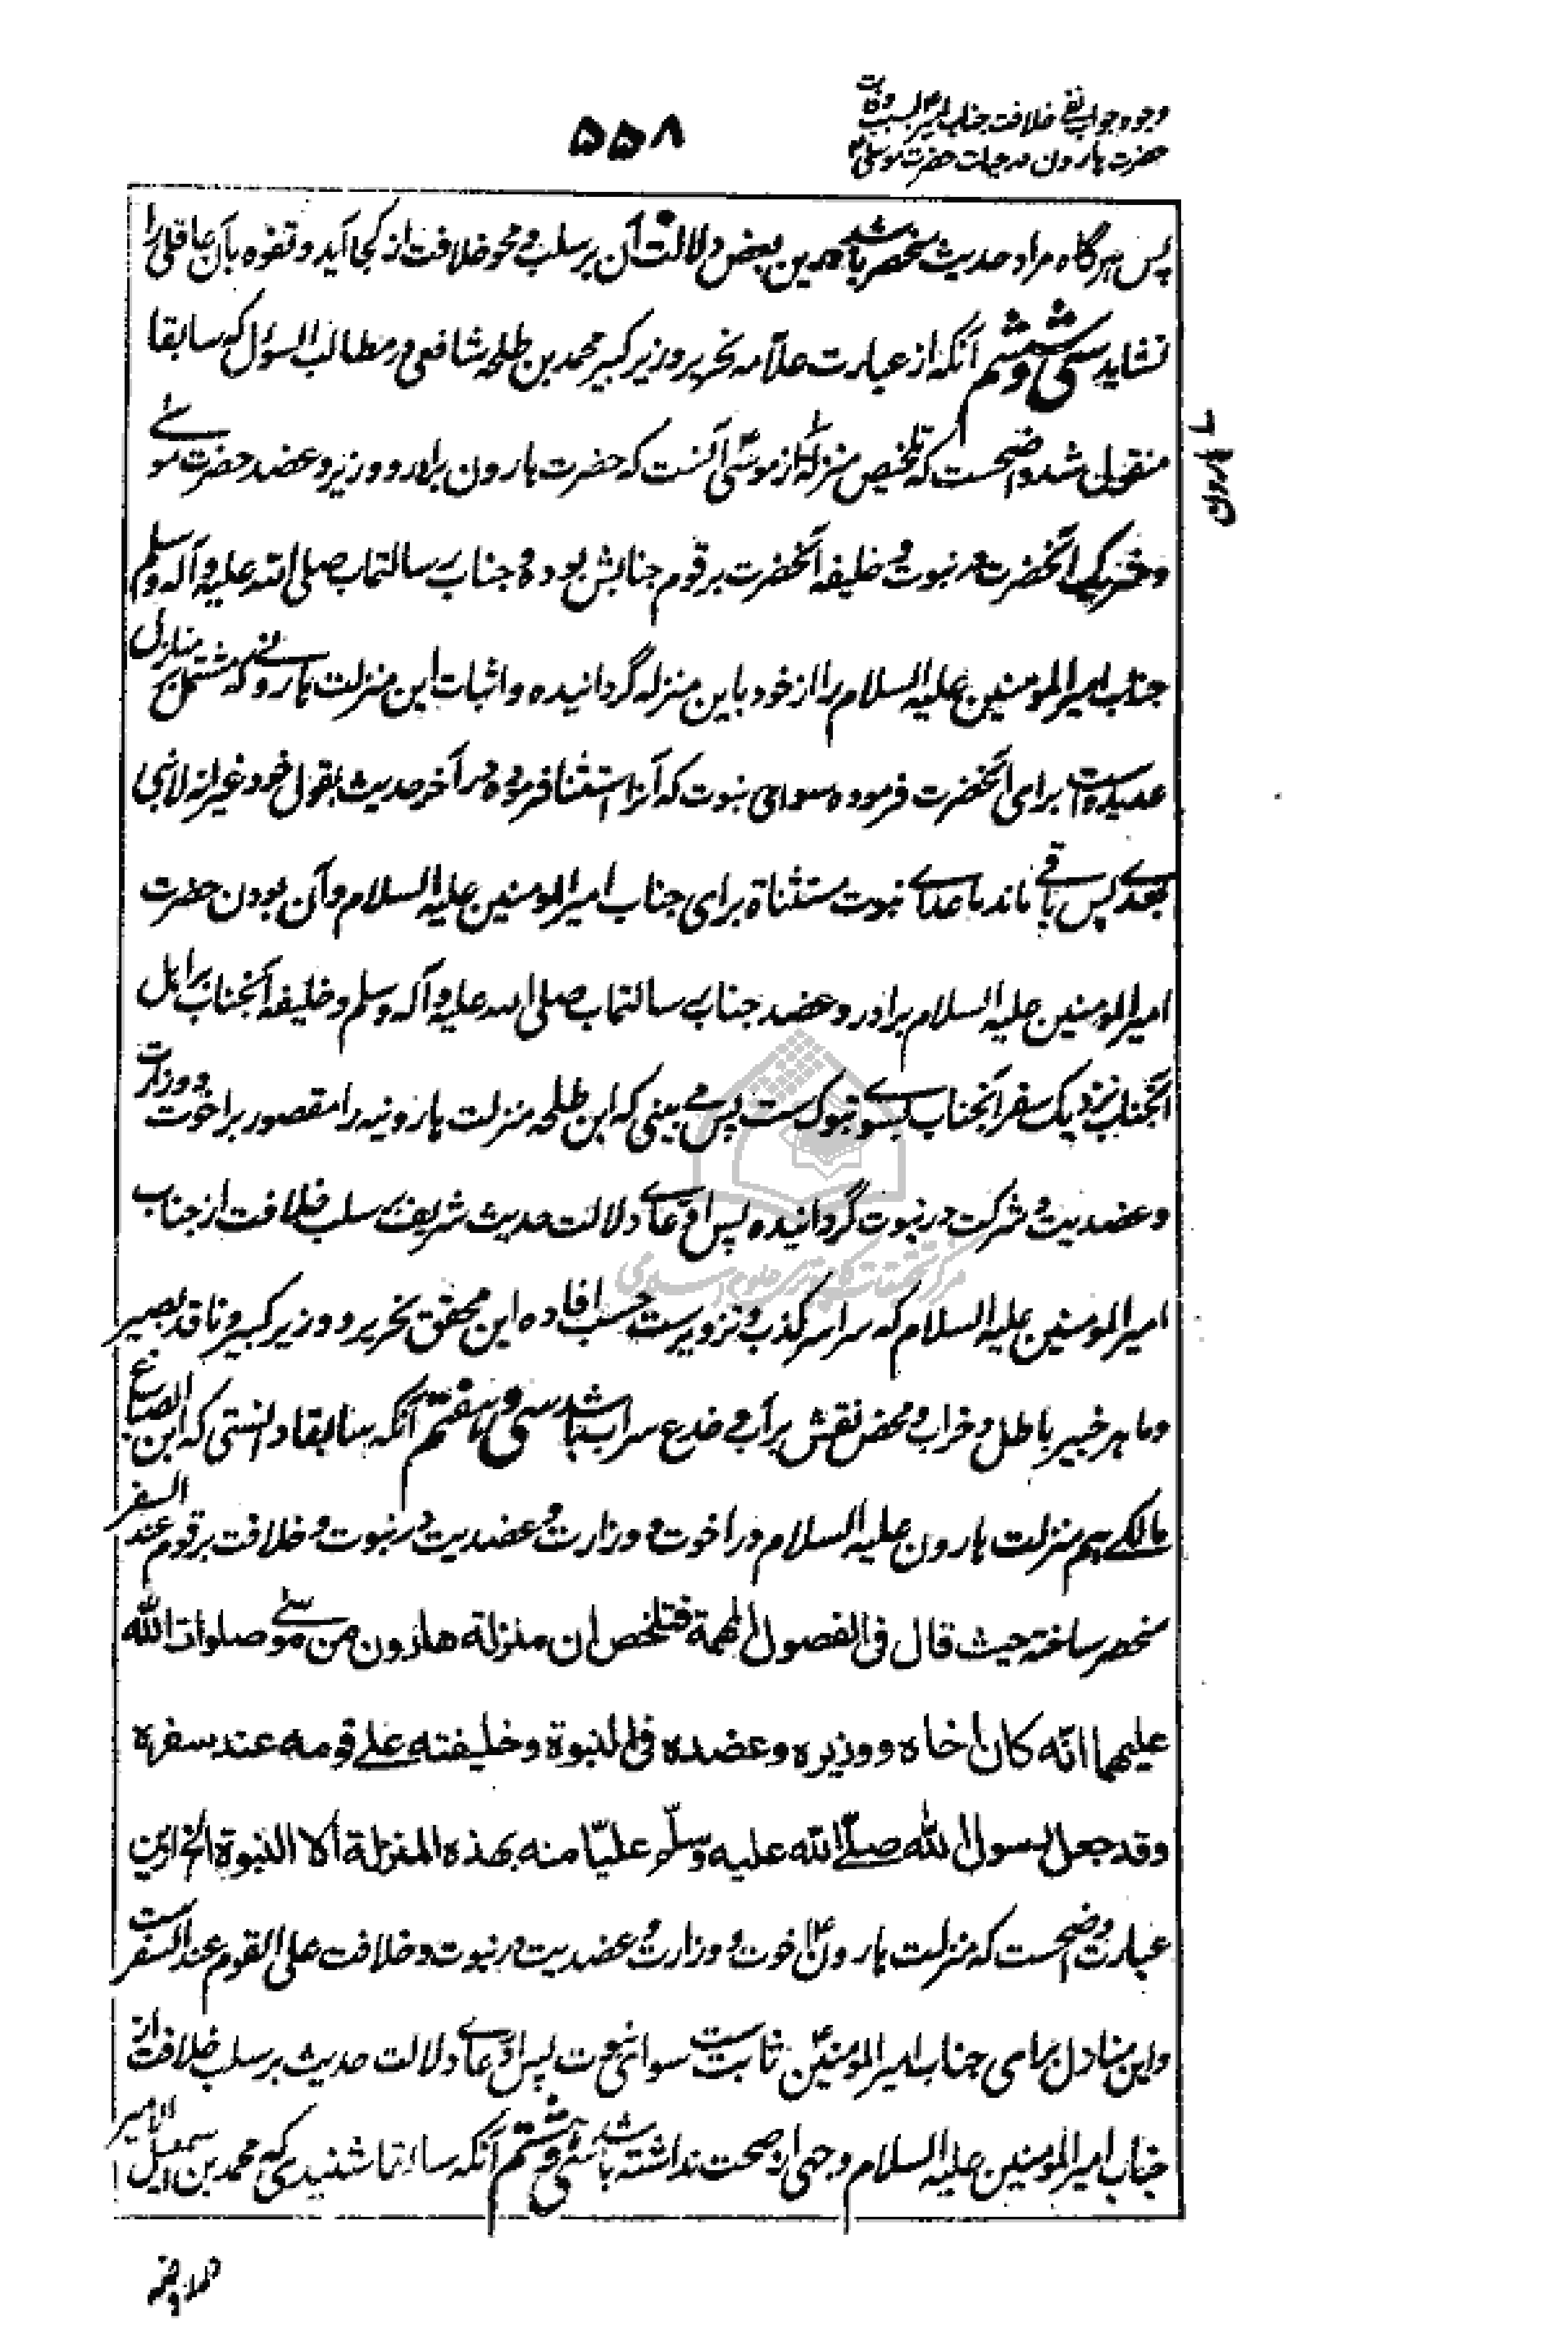 وجوه جواب نفی خلافت جناب امیر بسبب وفات
۵۵۸
حضرت هارون در حیات حضرت موسی
پس هرگاه مراد حدیث منحصر باشد درین بعض دلالت آن بر سلب و محو خلافت از کجا آید و تفوه بآن عاقلی را
نشاید سی و ششم آنکه از عبارت علامه نحریر و وزیر کبیر محمد بن طلحه شافعی در مطالب السؤل که سابقا
منقول شد واضحست که تلخیص منزله هارون از موسی آنست که حضرت هارون برادر و وزیر و عضد حضرت موسی
و شریک آنحضرت در نبوت و خلیفه آنحضرت بر قوم جنابش بوده و جناب رسالتمآب صلی الله علیه و آله و سلم
جناب امیر المومنین علیه السلام را از خود باین منزله گردانیده و اثبات این منزلت هارونی که مشتمل بر منازل
عدیده است برای آنحضرت فرموده سوای نبوت که آنرا استثنا فرموده در آخر حدیث بقول خود غیر انه لا نبی
بعدی پس باقی ماند ماعدای نبوت مستثناة برای جناب امیر المومنین علیه السلام و آن بودن حضرت
امیر المومنین علیه السلام برادر و عضد جناب رسالتمآب صلی الله علیه و آله و سلم و خلیفه آنجناب بر اهل
آنجناب نزدیک سفر آنجناب بسوی تبوک ست پس می بینی که ابن طلحه منزلت هارونیه را مقصور بر اخوت و وزارت
و عضدیت و شرکت در نبوت گردانیده پس ادعای دلالت حدیث شریف بر سلب خلافت از جناب
امیر المومنین علیه السلام که سراسر کذب و تزویرست حسب افاده این محقق نحریر و وزیر کبیر و ناقد بصیر
و ماهر خبیر باطل و خراب و محض نقش بر آب و خدع سراب باشد سی و هفتم آنکه سابقا دانستی که ابن الصباغ
مالکی هم منزلت هارون علیه السلام در اخوت و وزارت و عضدیت در نبوت و خلافت بر قوم عند السفر
منحصر ساخته حیث قال فی الفصول المهمة فتلخص ان منزلة هارون من موسی صلوات الله
علیهما انّه کان اخاه و وزیره و عضده فی النبوة و خلیفته علی قومه عند سفره
وقد جعل رسول الله صلّی الله علیه وسلّم علیّا منه بهذه المنزلة الا النبوة الخ ازین
عبارت واضحست که منزلت هارون اخوت و وزارت و عضدیت در نبوت و خلافت علی القوم عند السفر ست
و این منازل برای جناب امیر المومنین ثابت ست سوای نبوت پس ادعای دلالت حدیث بر سلب خلافت از
جناب امیر المومنین علیه السلام وجهی از صحت نداشته باشد سی و هشتم آنکه سابقا شنیدی که محمد بن اسمعیل الامیر